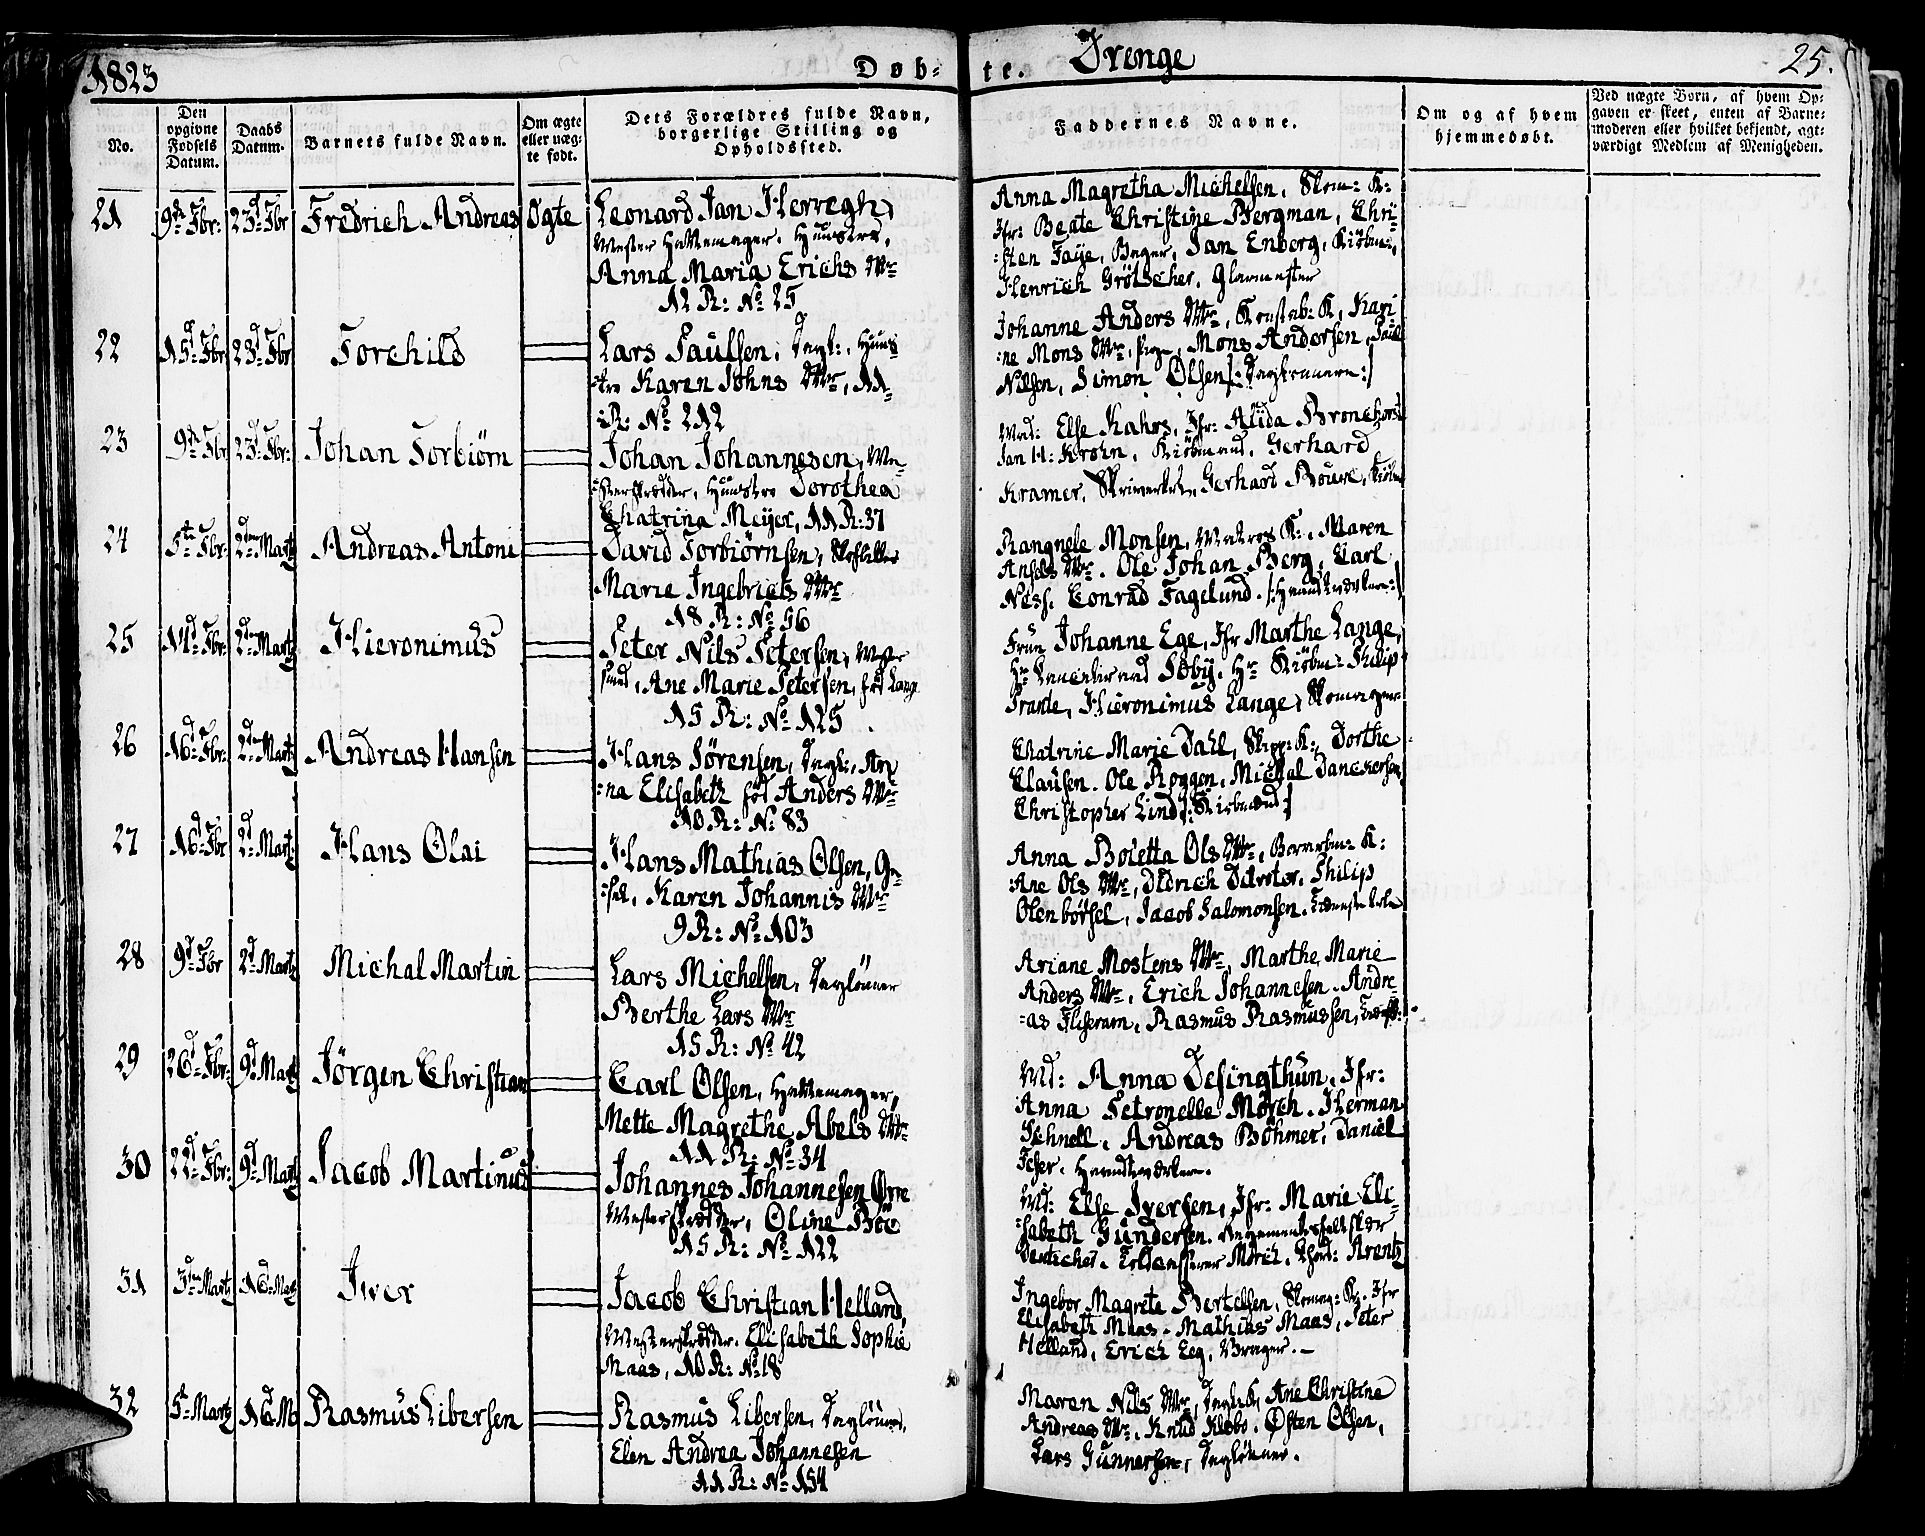 1823
Døb-
te.
Drenge
25.
No.
Den opgivne Fødsels Datum.
Daabs Datum.
Barnets fulde Navn.
Om ægte eller uæg- te født.
Dets Forældres fulde Navn, borgerlige Stilling og Opholdssted.
Faddernes Navne.
Om og af hvem hjemmedøbt.
Ved uægte Børn, af hvem Op- gaven er skeet, enten af Barne- moderen eller hvilket bekjendt, agt- værdigt Medlem af Menigheden.
21 9d Fbr: 23d Fbr Fredrich Andreas Ægte
Leonard Jan Herregh,
Mester Hattemager, Huustro,
Anna Maria Erichs Dtr
12 R: No 25
Anna Magretha Michelsen, Skom: K:
Jfr: Beate Christine Bergman, Chri-
:sten Faÿe, Bager, Jan Enberg, Kiøbm:,
Henrich Grötscher, Glarmester
22 15d Fbr 23d Fbr Torchild
Lars Paulsen, Dagl:, Huus-
:tro Karen Johns Dtr, 11-
:R: No 212
Johanne Anders Dtr, Konstab: K, Kari
:ne Mons Dtr, Pige, Mons Andersen, Paul
Nilsen, Simon Olsen /:Dagleønnere:/
23 9d Fbr 23d Fbr: Johan Torbiørn
Johan Johannesen, Me-
:sterskrædder, Huustro Dorothea
Chatrina Meÿer, 11 R: 37
Mad: Else Kahrs, Jfr: Alida Bronchorst
Jan H: Krohn, Kiøbmand, Gerhard
Kramer, Gerhard Bouwe, Kiøbm
24 5te Fbr: 2den Martz Andreas Antoni
David Torbiørnsen,
Marie Ingebrigts Dtr
18 R: No 56
Rangnele Monsen, Matros K:, Maren
Ansels Dtr. Ole Johan Berg, Carl
Ness, Conrad Fagelund /:Haandtværkere:/
25 14d Fbr: 2den Martz Hieronimus
Peter Nils Petersen,
Ane Marie Petersen, fød Lange
15 R: No 125
Frue Johanne Ege, Jfr Marthe Lange,
Hr Søby, Hr Kiøbm: Philip
Prante, Hieronimus Lange, Skomager
26 16d Fbr: 2den Martz Andreas Hansen
Hans Sørensen, Dagl:, An
:na Elisabeth fød Anders Dtr
10 R: No 83
Chatrine Marie Dahl, Skipp: K:, Dorthe
Clausen, Ole Roggen, Michal Danckersen,
Christopher Lind /:Kiøbmænd:/
27 16d Fbr 2d Mart: Hans Olai
Hans Mathias Olsen, Ge-
:sel, Karen Johannis Dtr
9 R: No 103
Anna Boletta Ols Dtr, K:
:Ane Ols Dtr, Didrich Ditvstor, Philip
Olenbørsel, Jacob Salomonsen.
28 9d Fbr 2d Martz Michal Martin
Lars Michelsen, Daglønner
Berthe Lars Dtr
15 R: No 42
Ariane Mostens Dtr, Marthe Marie
Anders Dtr, Erich Johannesen, Andre-
:as Fliseram, Rasmus Rasmussen,
29 26d Fbr: 9d Martz Jørgen Christian
Carl Olsen, Hattemager,
Mette Magrethe Abels Dtr
11 R: No 34
Md: Anna Desingthun, Jfr:
Anna Petronelle Mørch. Herman
Schnell, Andreas Bøhmer, Daniel
Teher, Haandtværkere.
30 22d Fbr: 9d Martz Jacob Martinus
Johannes Johannesen Ørre
Mesterskrædder, Oline Bøe
15 R: No 122
Md: Else Iversen, Jfr: Marie Eli-
:sabeth Gundersen. Regementsfeldskiær
Mørch. Arentz
31 3den Martz 16d Martz Iver
Jacob Christian Helland,
Mesterskrædder. Elisabeth Sophie
Maas, 10 R: No 18
Ingebor Magrete Bertelsen, Skomag: K:. Jfr
Elisabeth Maas. Mathias Maas, Peter
Helland, Erich Eeg, Brager.-
32 5te Martz 16d M Rasmus Libersen
Rasmus Libersen, Daglønner,
Elen Andrea Johannesen
11 R: No 154
Maren Nils Dtr, Dagl: K, Ane Christine
Andreas Dtr. Knud Klebo. Østen Olsen,
Lars Gunnersen, Daglønner.